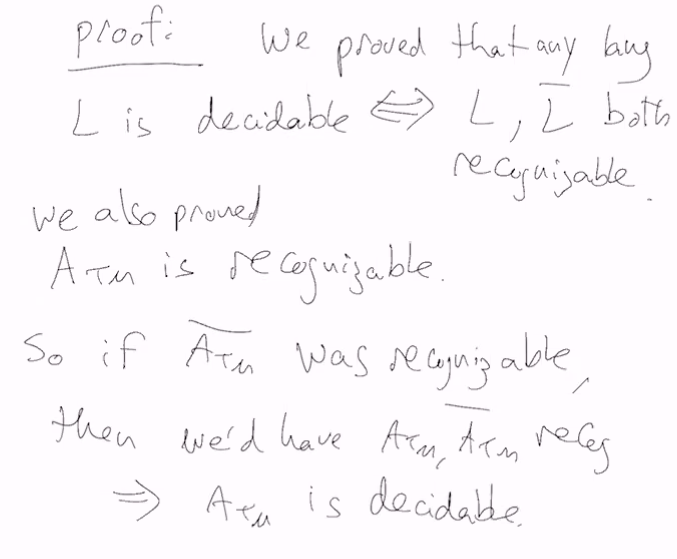 proof: We proved that any lang
L is decidable ⟺ L, L̅ both
recognizable.
we also proved
A_TM is recognizable.
So if A̅_T̅M̅ was recognizable,
then we'd have A_TM, A̅_T̅M̅ recog
⟹ A_TM is decidable.